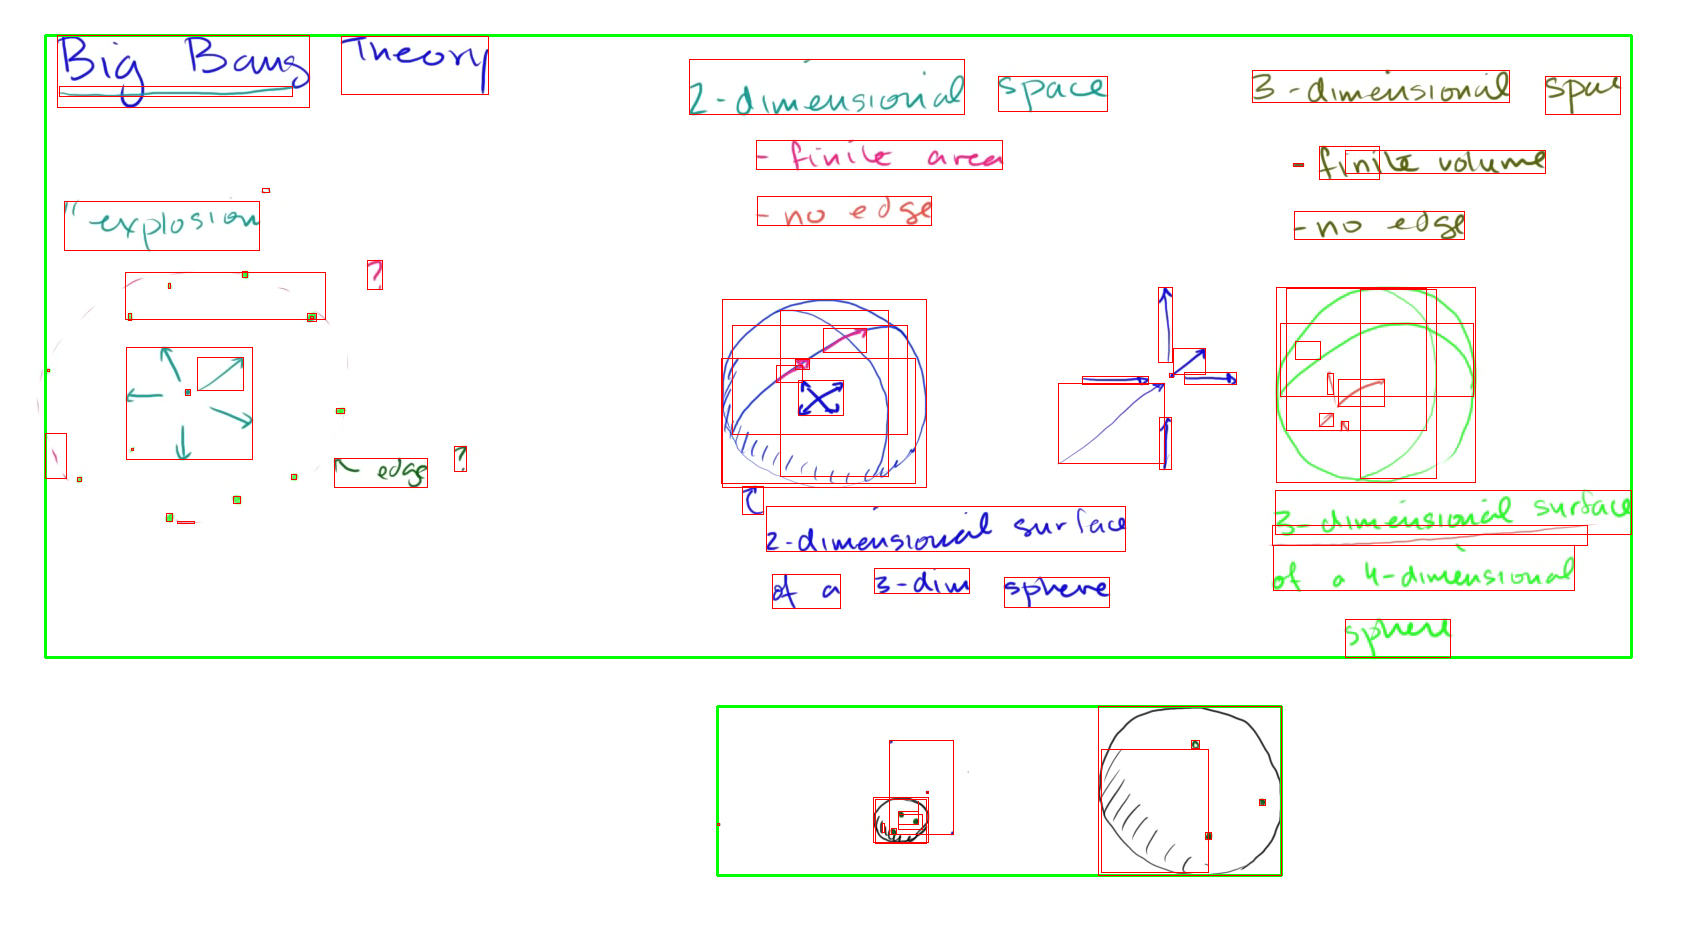 Big Bang Theory
"explosion
?
edge ?
2-dimensional space
- finite area
- no edge
2-dimensional surface
of a 3-dim sphere
3-dimensional spac
- finite volume
- no edge
3-dimensional surface
of a 4-dimensional
sphere